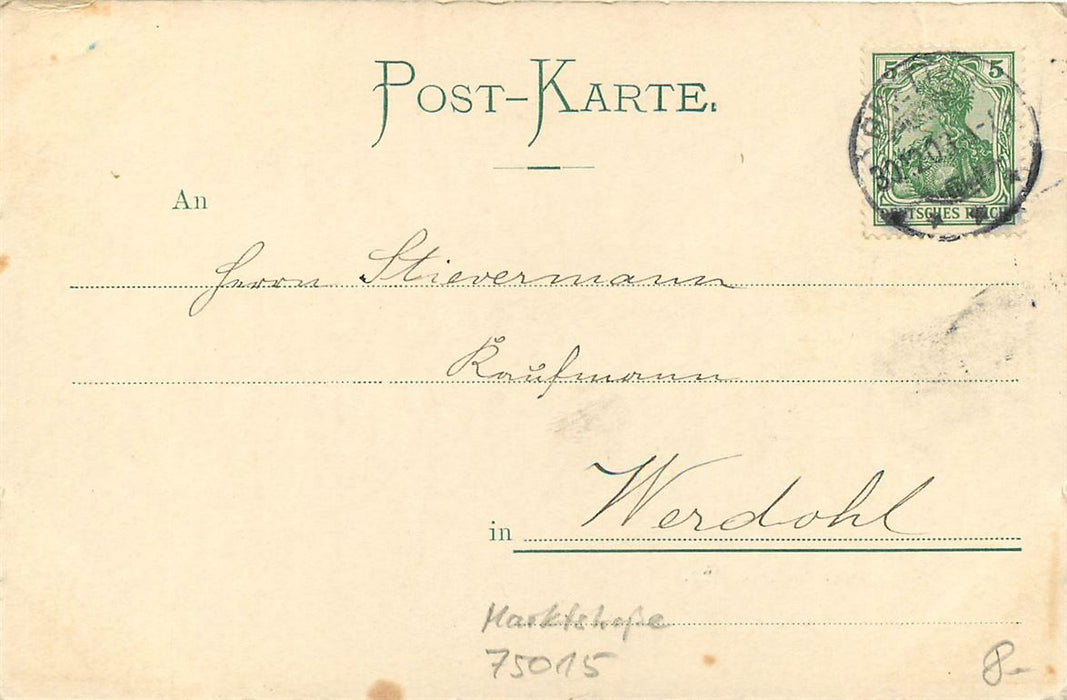 POST-KARTE.
5 5
DEUTSCHES REICH
An
Herrn Stievermann
Kaufmann
in Werdohl
75015
8-